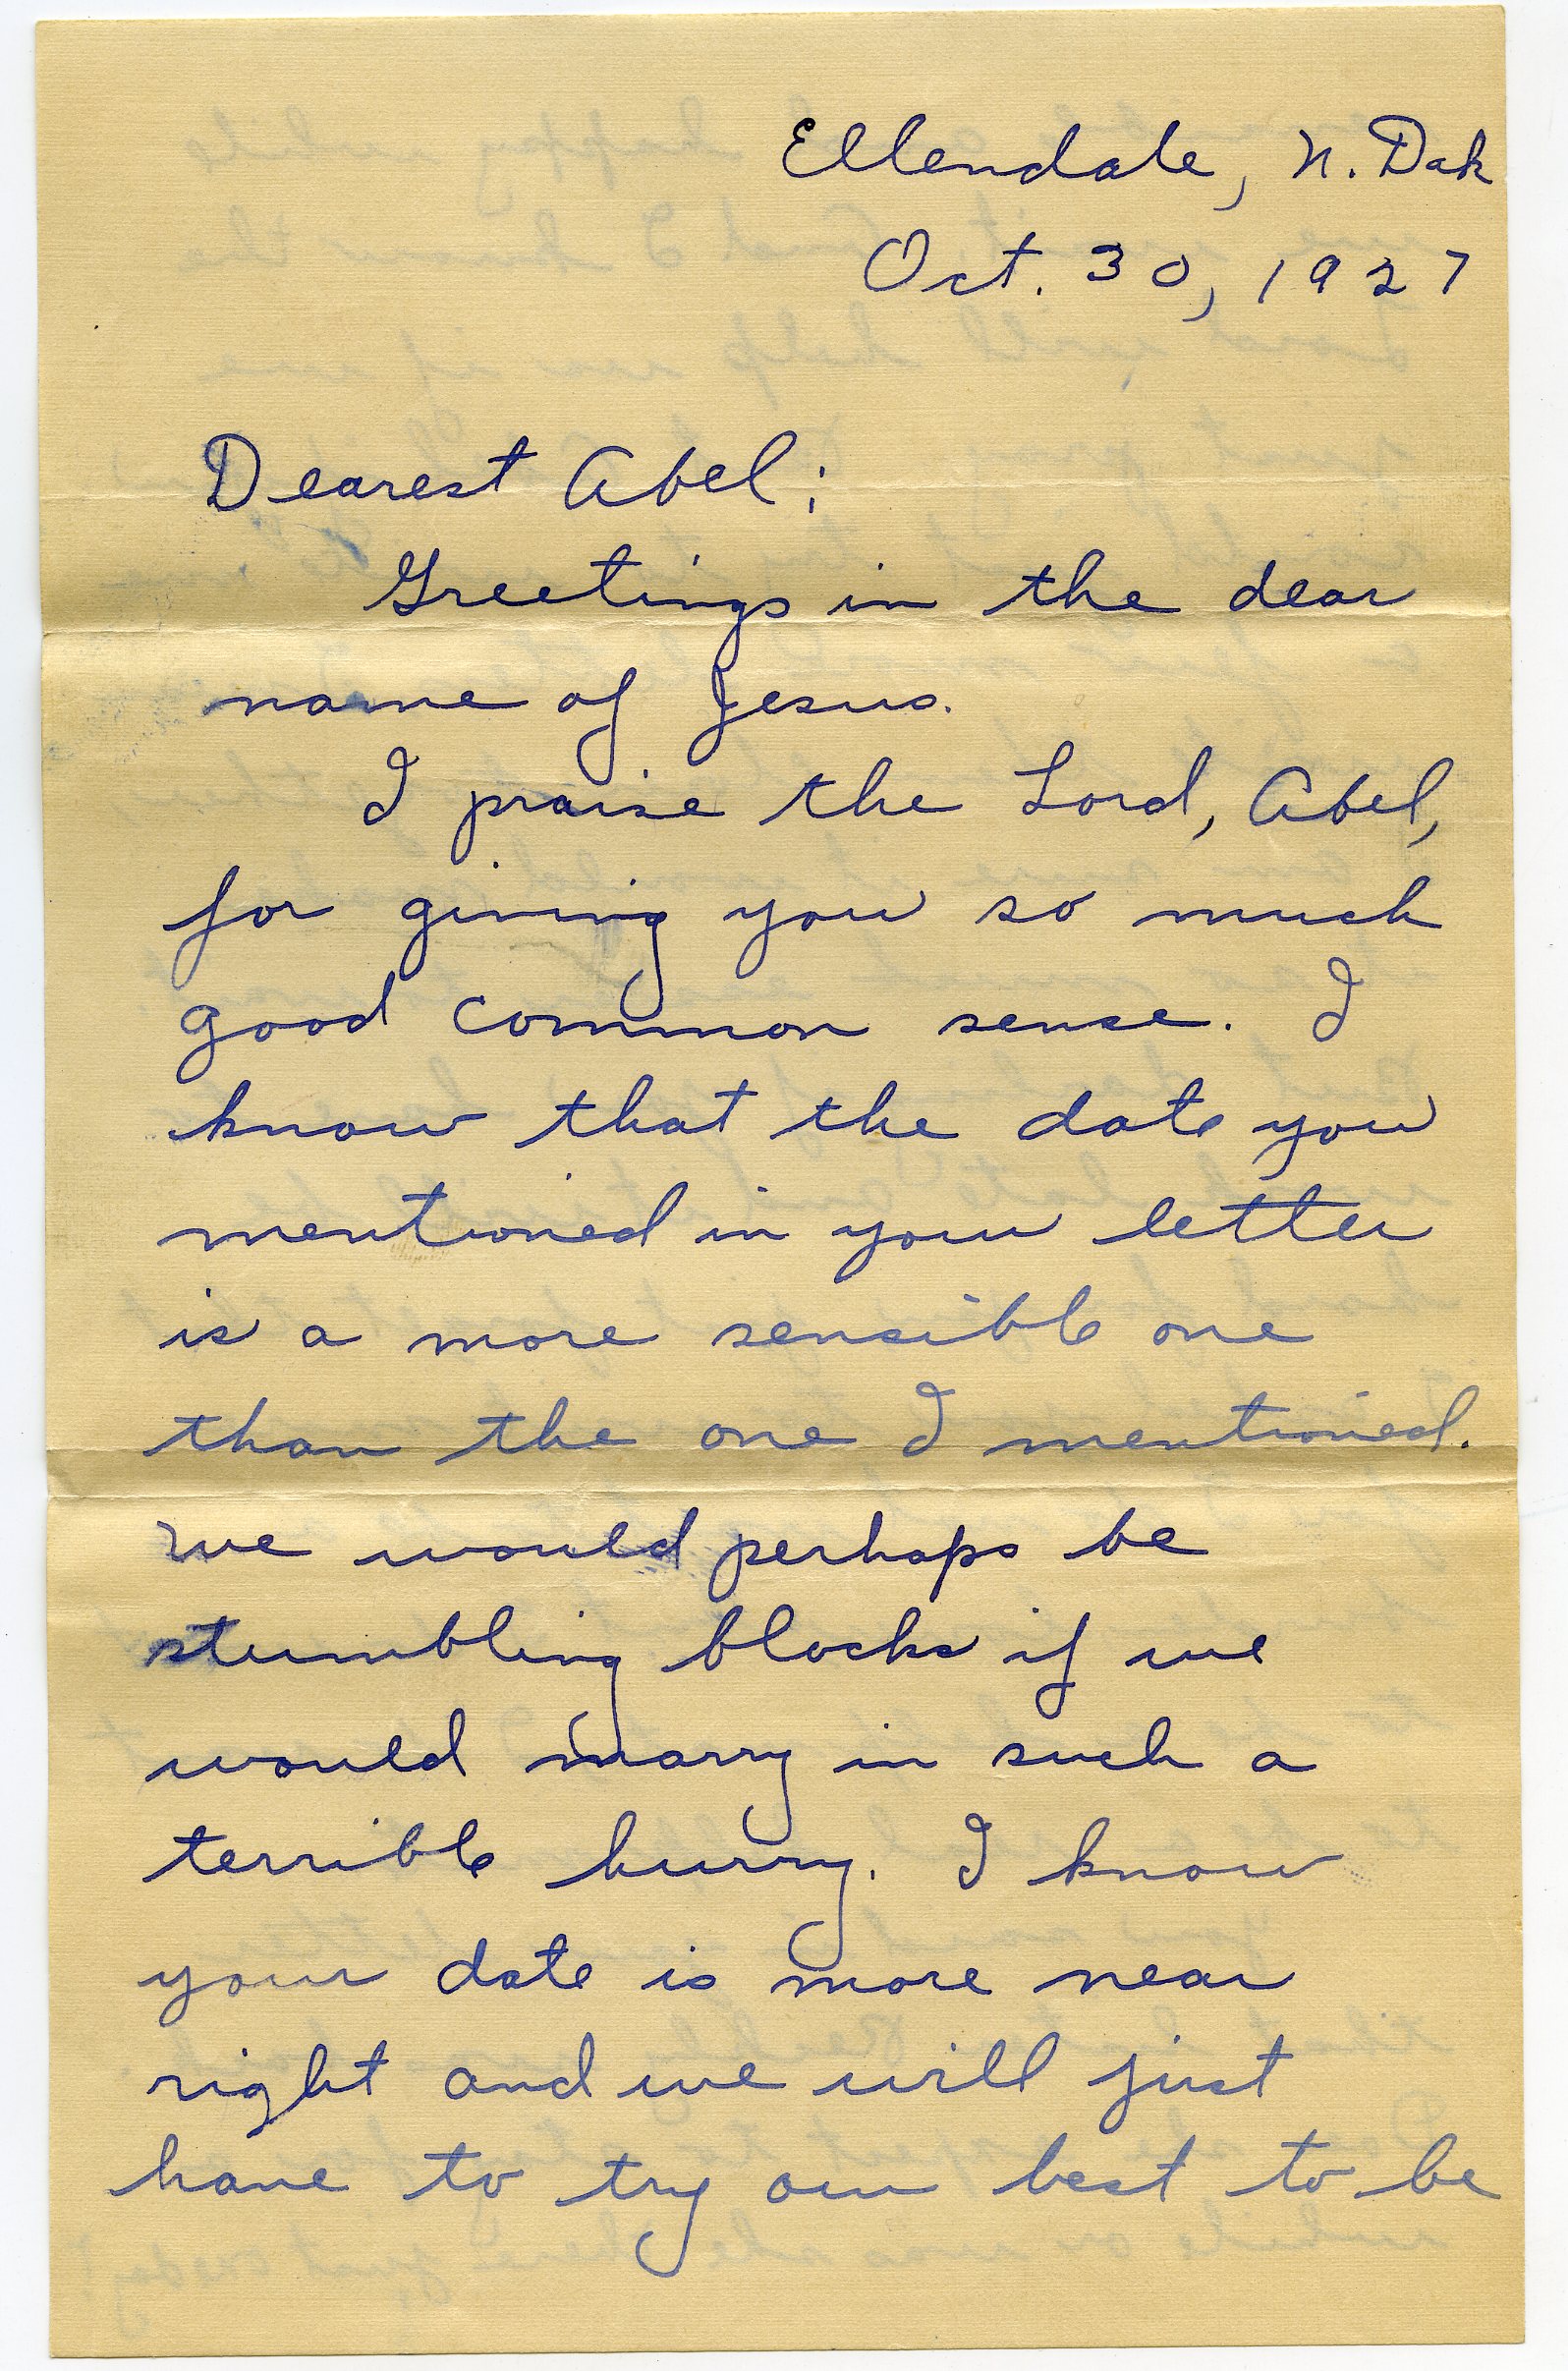 Ellendale, N. Dak
Oct. 30, 1927
Dearest Abel;
Greetings in the dear
name of Jesus.
I praise the Lord, Abel,
for giving you so much
good common sense. I
know that the date you
mentioned in your letter
is a more sensible one
than the one I mentioned.
We would perhaps be
stumbling blocks if we
would marry in such a
terrible hurry. I know
your date is more near
right and we will just
have to try our best to be